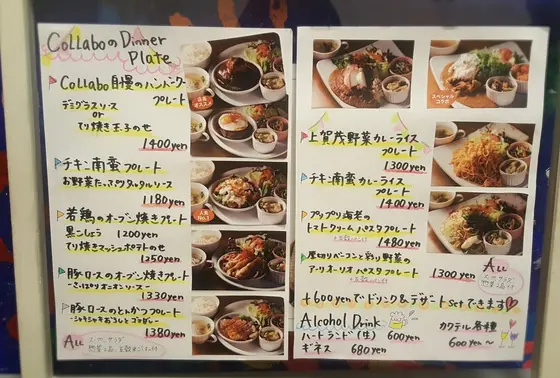 Collaboのdinner
Plate
Collabo自慢のハンバーグ
プレート
デミグラスソース
or
てり焼き玉子のせ
1400yen
チキン南蛮プレート
お野菜たっぷりタルタルソース
1180yen
若鶏のオーブン焼きプレート
黒こしょう 1200yen
てり焼きマッシュポテトのせ
1250yen
豚ロースのオーブン焼きプレート
-さっぱりオニオンソース-
1330yen
豚ロースのとんかつプレート
1380yen
ALL
店長
オススメ
人気
No.1
スペシャル
コラボ
上賀茂野菜カレーライス
プレート
1300yen
チキン南蛮カレーライス
プレート
1400yen
プリプリ海老の
トマトクリームパスタプレート
1480yen
厚切りベーコンと彩り野菜の
アーリオオーリオパスタプレート
1300yen
ALL
+600yenでドリンク&デザートsetできます
Alcohol Drink
ハートランド(生) 600yen
ギネス 680yen
カクテル各種
600yen~